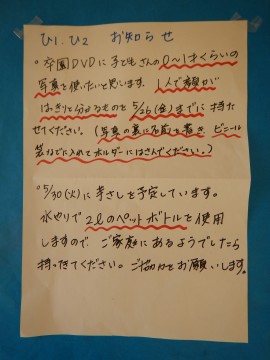 ひ1.ひ2 お知らせ
○卒園DVDに子どもさんの0〜1才くらいの
写真を使いたいと思います。1人で顔が
はっきりと分かるものを5/26(金)までに持た
せてください。(写真の裏に名前を書き ビニール
袋などに入れてホルダーにはさんでください。)
○5/30(火)に芋さしを予定しています。
水やりで2ℓのペットボトルを使用
しますので ご家庭にあるようでしたら
持ってきてください。ご協力をお願いします。